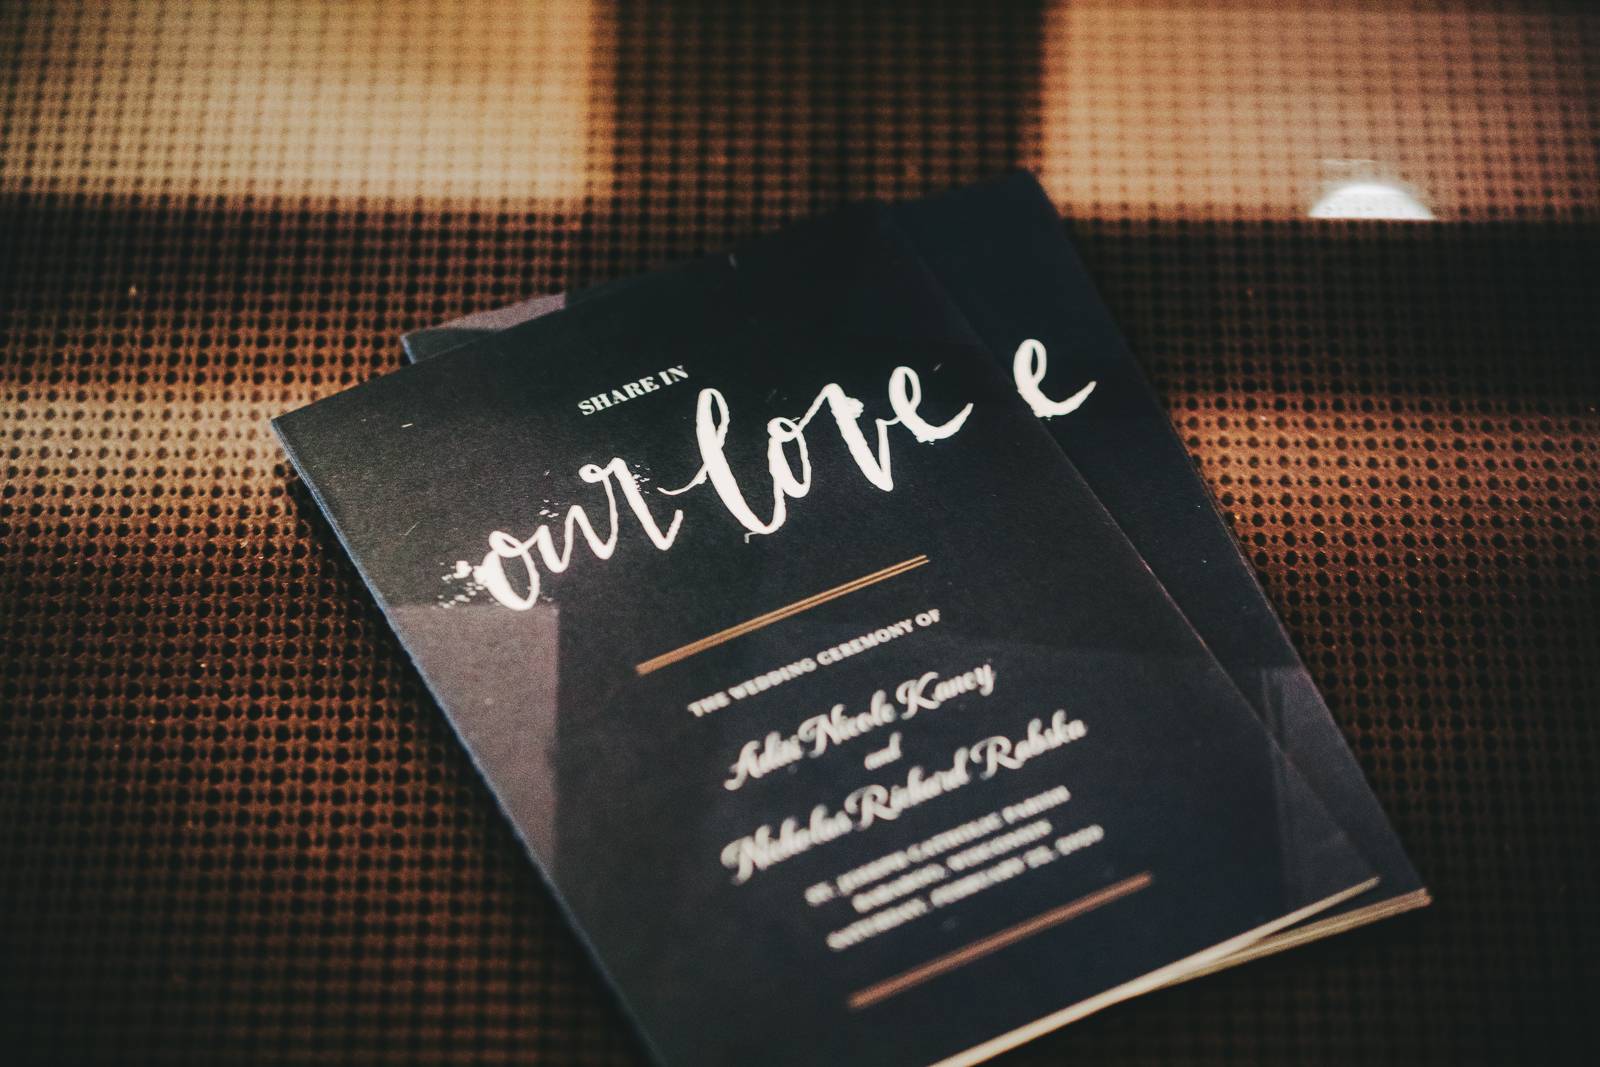 SHARE IN
our love
e
THE WEDDING CEREMONY OF
Nicole Kancy
and
Nicholas Richard Rabska
ST. JOSEPH CATHOLIC PARISH
WISCONSIN
SATURDAY, FEBRUARY